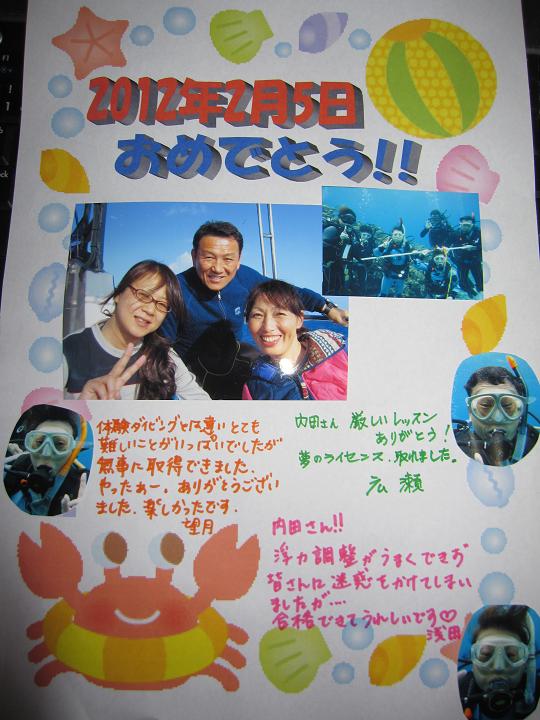 2012年2月5日
おめでとう!!
体験ダイビングとは違いとても
難しいことがいっぱいでしたが
無事に取得できました。
やったぁー。ありがとうござい
ました。楽しかったです。
望月
内田さん 厳しいレッスン
ありがとう!
夢のライセンス、取れました。
広瀬
内田さん!!
浮力調整がうまくできず
皆さんに迷惑をかけてしまい
ましたが…
合格できてうれしいです♡
浅田